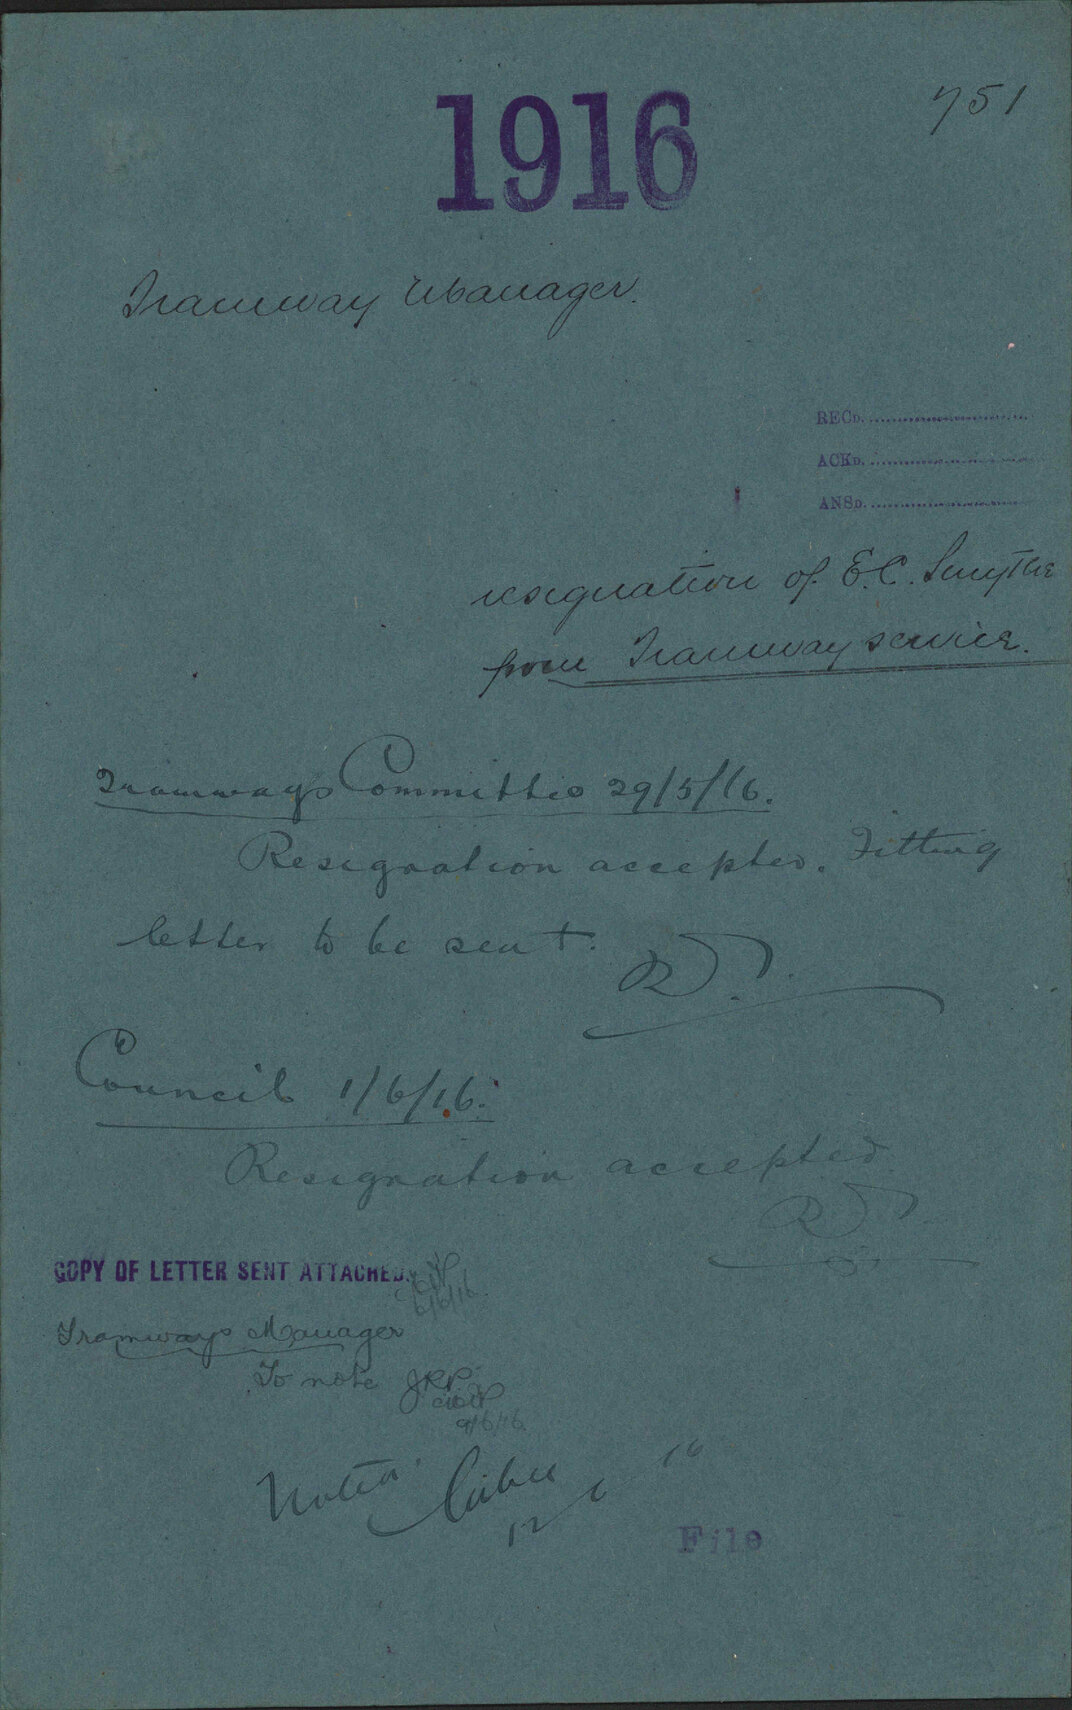 1916
751
Tramway Manager.
RECD.
ACKD.
ANSD.
resignation of E.C. Smythe
from Tramway service.
Tramways Committee 29/5/16.
Resignation accepted. Fitting
letter to be sent.
Council 1/6/16.
Resignation accepted.
COPY OF LETTER SENT ATTACHED.
6/6/16
Tramways Manager
To note JRP
9/6/16
Noted
12/6/16
File